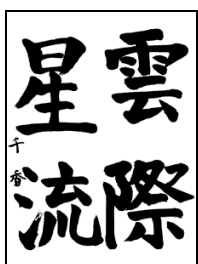 雲際
星流
千香